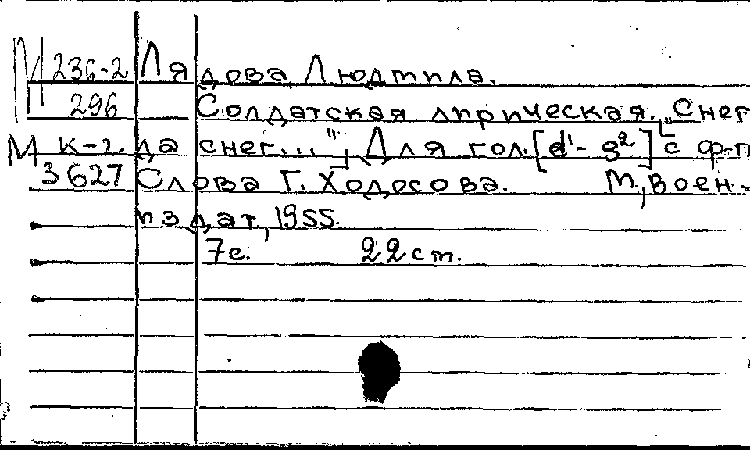 М 236-2 Лядова, Людмила.
296 Солдатская лирическая. „Снег
М к-г. да снег..." Для гол. [d¹- g²] с ф-п
3627 Слова Г. Ходосова. М., Воен-
издат, 1955.
7с. 22 ст.